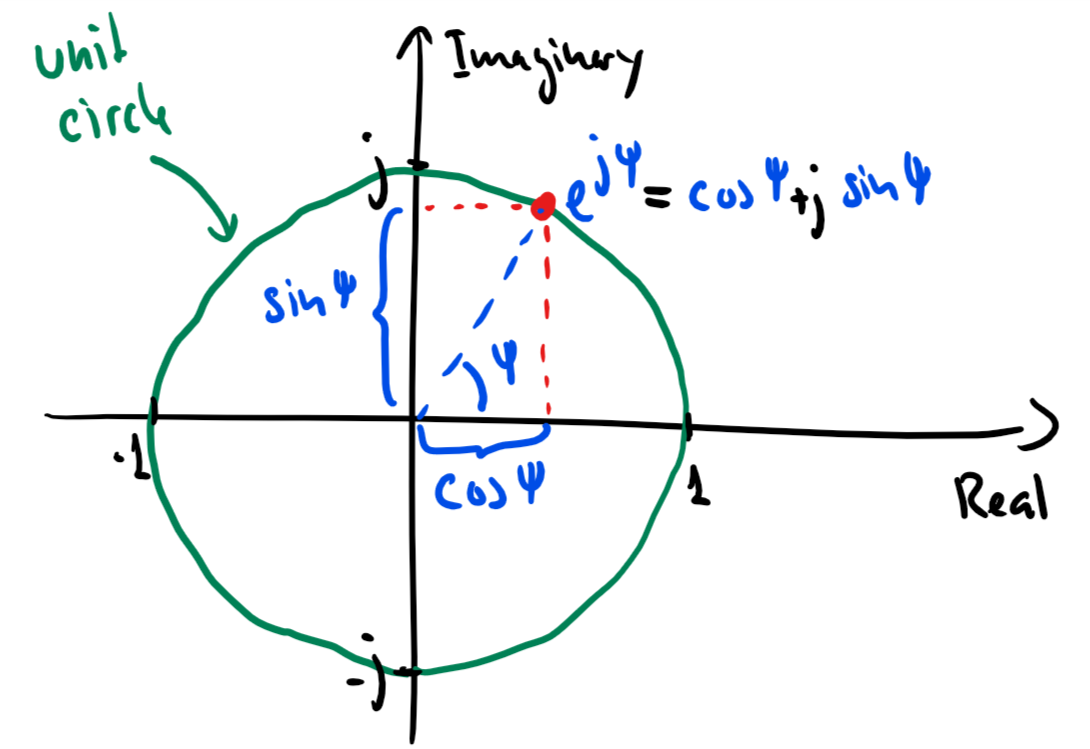 unit
circle
Imaginary
j
e^{jψ} = cos ψ + j sin ψ
sin ψ
ψ
-1
cos ψ
1
Real
-j